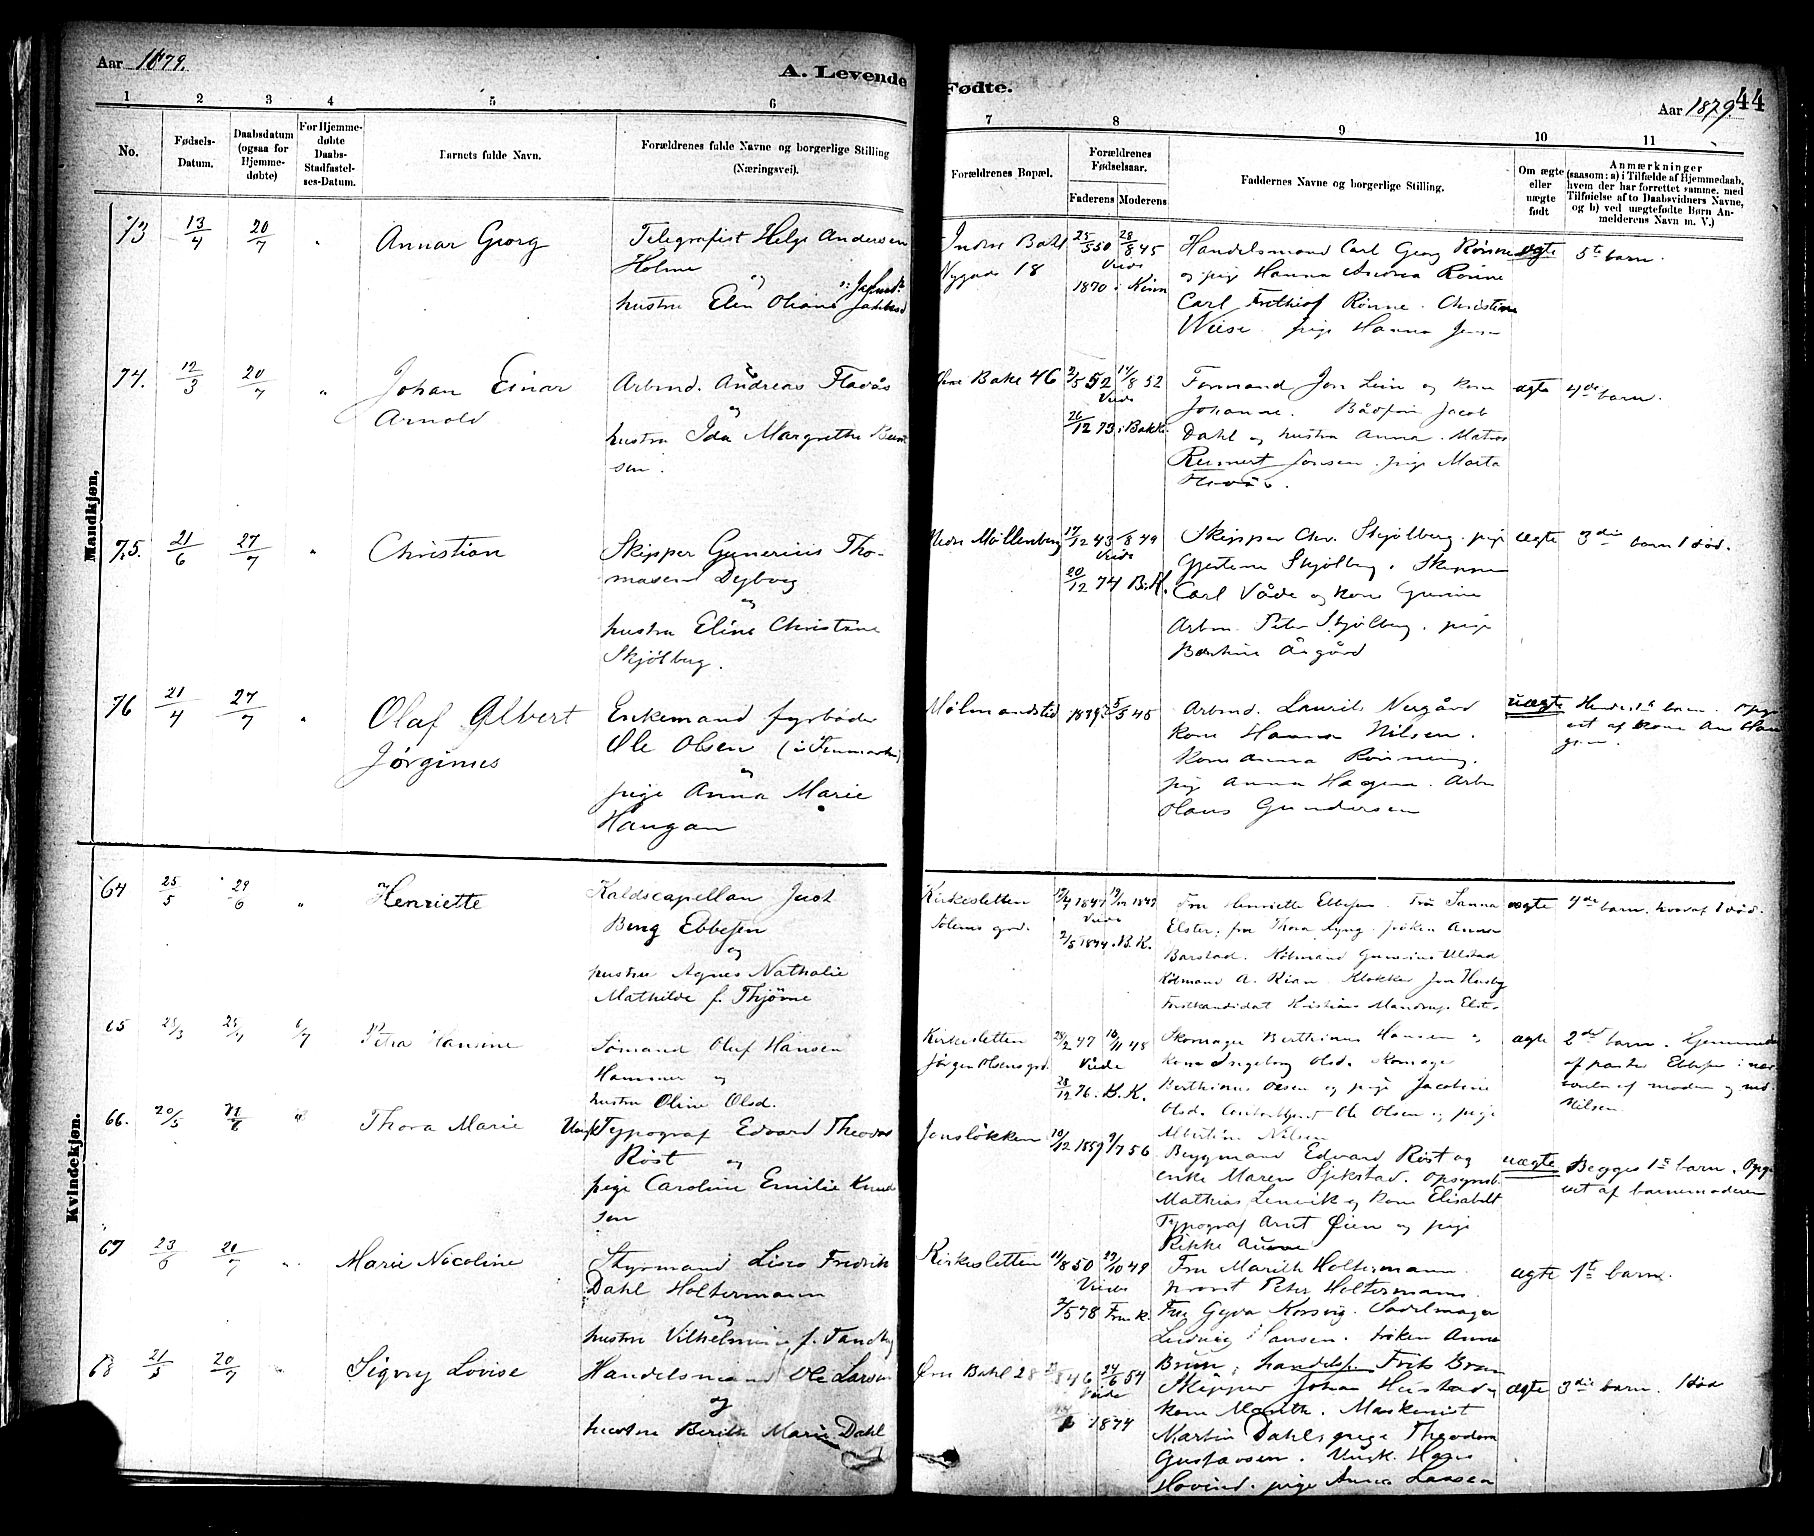 Aar 1879.
A. Levende
Fødte.
Aar 1879.
44
1
2
3
4
5
6
7
8
9
10
11
No.
Fødsels-
Datum.
Daabsdatum
(ogsaa for
Hjemme-
døbte)
For Hjemme-
døbte
Daabs-
Stadfæstel-
ses-Datum.
Barnets fulde Navn.
Forældrenes fulde Navne og borgerlige Stilling
(Næringsvei).
Forældrenes Bopæl.
Forældrenes
Fødselsaar.
Faderens
Moderens
Faddernes Navne og borgerlige Stilling.
Om ægte
eller
uægte
født
Anmærkninger
(saasom: a) i Tilfælde af Hjemmedaab,
hvem der har forrettet samme, med
Tilføielse af to Daabsvidners Navne,
og b) ved uægtefødte Børn An-
melderens Navn m. V.)
Mandkjøn.
73 13/4 20/7 "
Annar Georg
Telegrafist Helge Andersen
Holme
og
hustru Elen Oliane
Indre Bakl
Nygade 18
25/3 50 28/8 45
Viede
1870 i
Handelsmand Carl Georg Rønne
og pige Hanna Andrea Rønne
Carl Frithiof Rønne. Christian
Wiese. pige Hanna
ægte
5te barn.
74. 12/3 20/7 "
Johan Einar
Arnold
Arbmd. Andreas Flavås
og
hustru Ida Margrethe
sen.
Øvre Bakl 46
2/5 52 14/8 52
Viede
26/12 73 i Bakke
Formand Jon Lein og kone
Johanne. Bådfør Jacob
Dahl og hustru Anna. Matros
Reinert Jonsen. pige Marta
Flavås.
ægte
4de barn.
75. 21/6 27/7 "
Christian
Skipper Gunerius Tho-
masen Dybvig
og
hustru Eline Christine
Skjølberg.
Nedre Møllenberg
17/12 43 /8 49
Viede
20/12 74 B.K.
Skipper Chr. Skjølberg. pige
Skjølberg. Skipper
Carl Våde og kone
Arbm. Peter Skjølberg. pige
Åsgård
ægte
3die barn 1 død.
76 21/4 27/7 "
Olaf Albert
Jørginus
Enkemand fyrbøder
Ole Olsen (i Finmarken)
og
pige Anna Marie
Haugan
Mølmandsted
5/5 45
Arbmd. Laurits Nergård
kone Hanna Nilsen.
Kone Anna Rønning.
pige Anna Hagen. Arbm
Hans Gundersen
uægte
Hendes 1te barn. Opgi-
vet af kone Ane Hau
gen.
Kvindekjøn.
64 25/5 29/6 "
Henriette
Kaldscapellan Just
Bing Ebbesen
og
hustru Agnes Nathalie
Mathilde f. Thjøme
Kirkesletten
grd.
1847 1847
Viede
2/5 1874. B.K.
Fru Henriette Ebbesen. Frø
Elster, fru Thora Lyng. frøken Anna
Barstad. Kjøbmand Gunerius Ulstad
Kjøbmand A. Rian. Klokker Jon Husby
Kristians Elster
ægte
4de barn, hvoraf 1 død.
65 25/3 25/4 6/7
Petra Hansine
Sømand Oluf Hansen
Hammer og
hustru Oline Olsd.
Kirkesletten
Jørgen Olsens grd.
28/2 47 16/11 48
Viede
28/12 76. B.K.
Skomager Berthinus Hansen og
kone Ingeborg Olsd. Skomager
Berthinus Olsen og pige Jacobine
Olsd. Ole Olsen og pige
Albertine Nilsen
ægte
2det barn. Hjemmedøbt
af pastor Ebbesen i nær-
værelse af moder og
Nilsen.
66. 20/5 "
Thora Marie
Ungk. Typograf Edvard Theodor
Røst og
pige Caroline Emilie Knud
sen
Jonsløkken
10/12 1859 9/7 56
Byggmand Edvard Røst og
enke Maren Sjekstad. Opsynsb.
Mathias Lenvik og kone Elisabeth
Typograf Arnt Øien og pige
Rikke Aune
uægte
Begges 1ste barn. Opgi-
vet af barnemoderen
67 20/7 "
Marie Nicoline
Styrmand Fredrik
Dahl Holtermann
og
hustru Vilhelmine f. Tandberg
Kirkesletten
11/8 50 29/10 49
Viede
2/5 78 Frue K.
Fru Marith Holtermann.
provst Peter Holtermann.
Frøk Gyda Korsvig. Sadelmager
Ludvig Hansen. frøken Anna
Bruun, handelsf. Frits Bruun
ægte
1ste barn.
68 21/5 20/7 "
Signy Lovise
Handelsmand Ole Larsen
og
hustru Berith Marie Dahl
Øvre Bakl 28
46 24/6 54
Viede
1874
Skipper Johan Hustad og
kone Marith. Maskinist
Martin Dahl, pige Theodora
Gustavsen. Ungk. Hans
Hovind. pige Anna Larsen
ægte
3die barn. 1 død